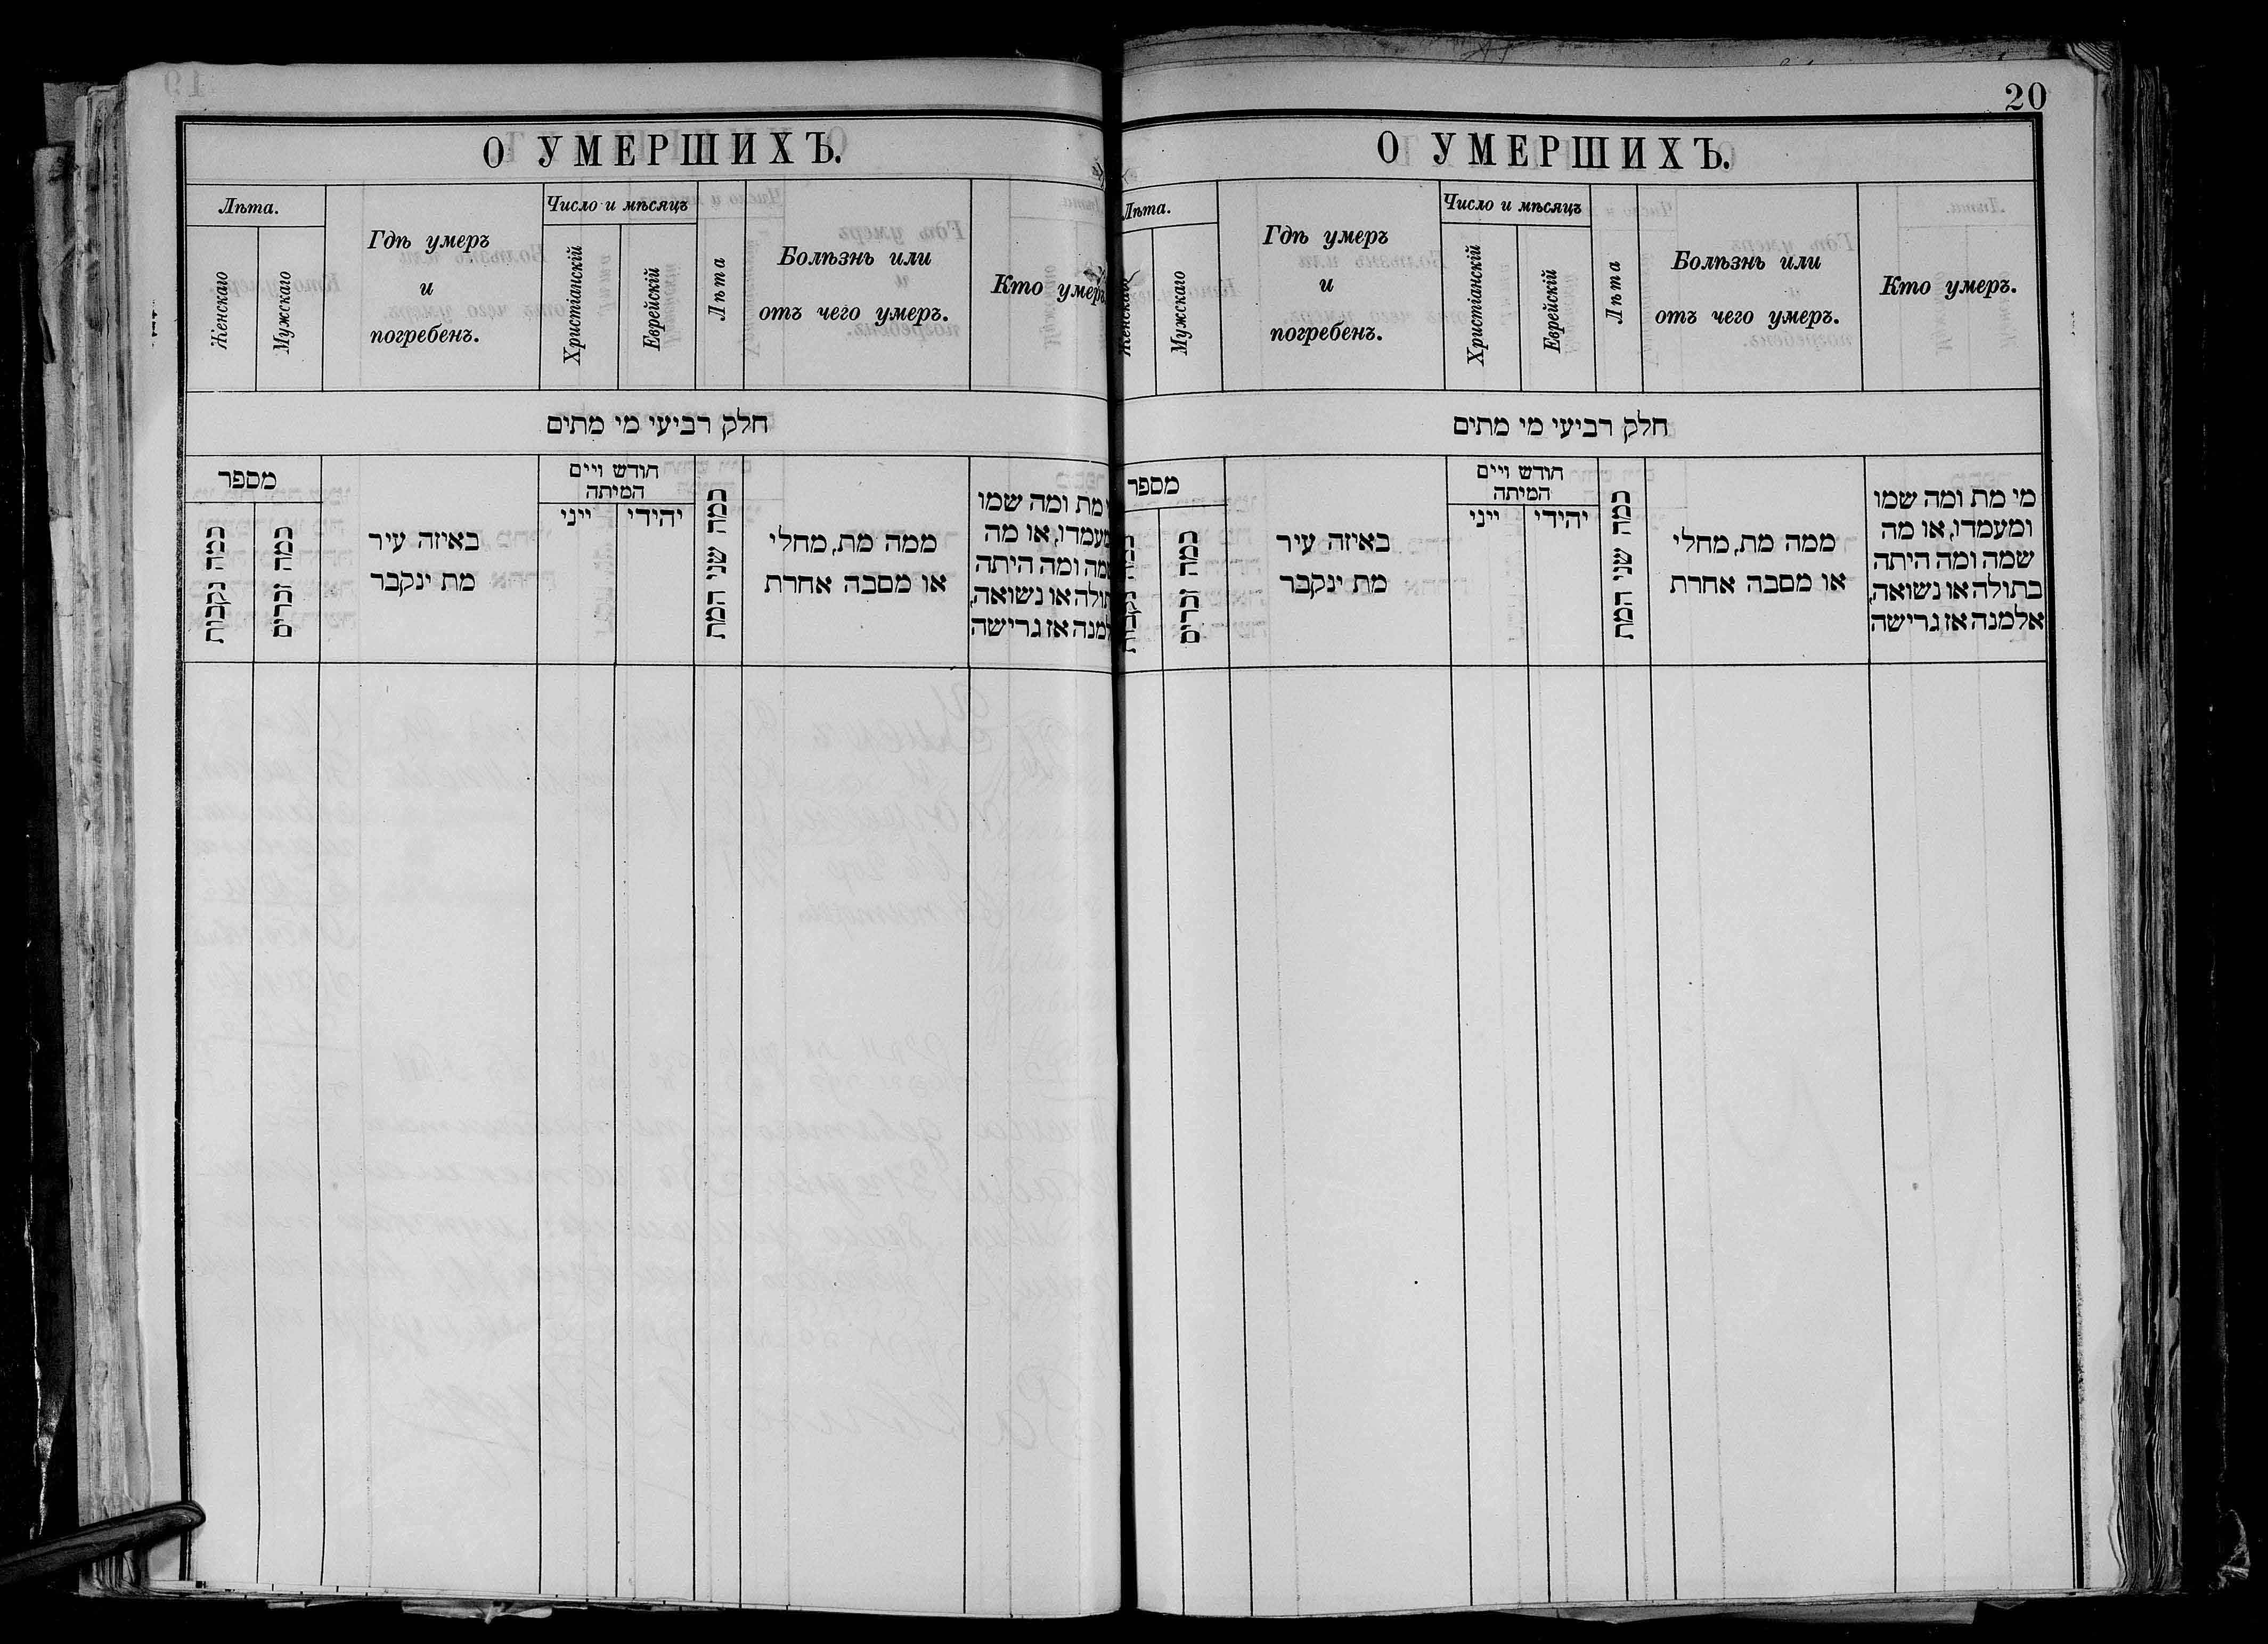 О УМЕРШИХЪ.
Лѣта.
Женскаго
Мужскаго
Гдѣ умеръ
и
погребенъ.
Число и мѣсяцъ
Христіанскій
Еврейскій
Лѣта
Болѣзнь или
отъ чего умеръ.
Кто умеръ.
חלק רביעי מי מתים
מספר
כמה נקבות
כמה זכרים
באיזה עיר
מת ינקבר
חודש ויים
המיתה
ייני
יהידי
כמה שני המת
ממה מת, מחלי
או מסבה אחרת
מת ומה שמו
מעמדו, או מה
שמה ומה היתה
תולה או נשואה,
למנה אז גרישה
20
О УМЕРШИХЪ.
Лѣта.
Женскаго
Мужскаго
Гдѣ умеръ
и
погребенъ.
Число и мѣсяцъ
Христіанскій
Еврейскій
Лѣта
Болѣзнь или
отъ чего умеръ.
Кто умеръ.
חלק רביעי מי מתים
מספר
כמה נקבות
כמה זכרים
באיזה עיר
מת ינקבר
חודש ויים
המיתה
ייני
יהידי
כמה שני המת
ממה מת, מחלי
או מסבה אחרת
מי מת ומה שמו
ומעמדו, או מה
שמה ומה היתה
בתולה או נשואה,
אלמנה אז גרישה